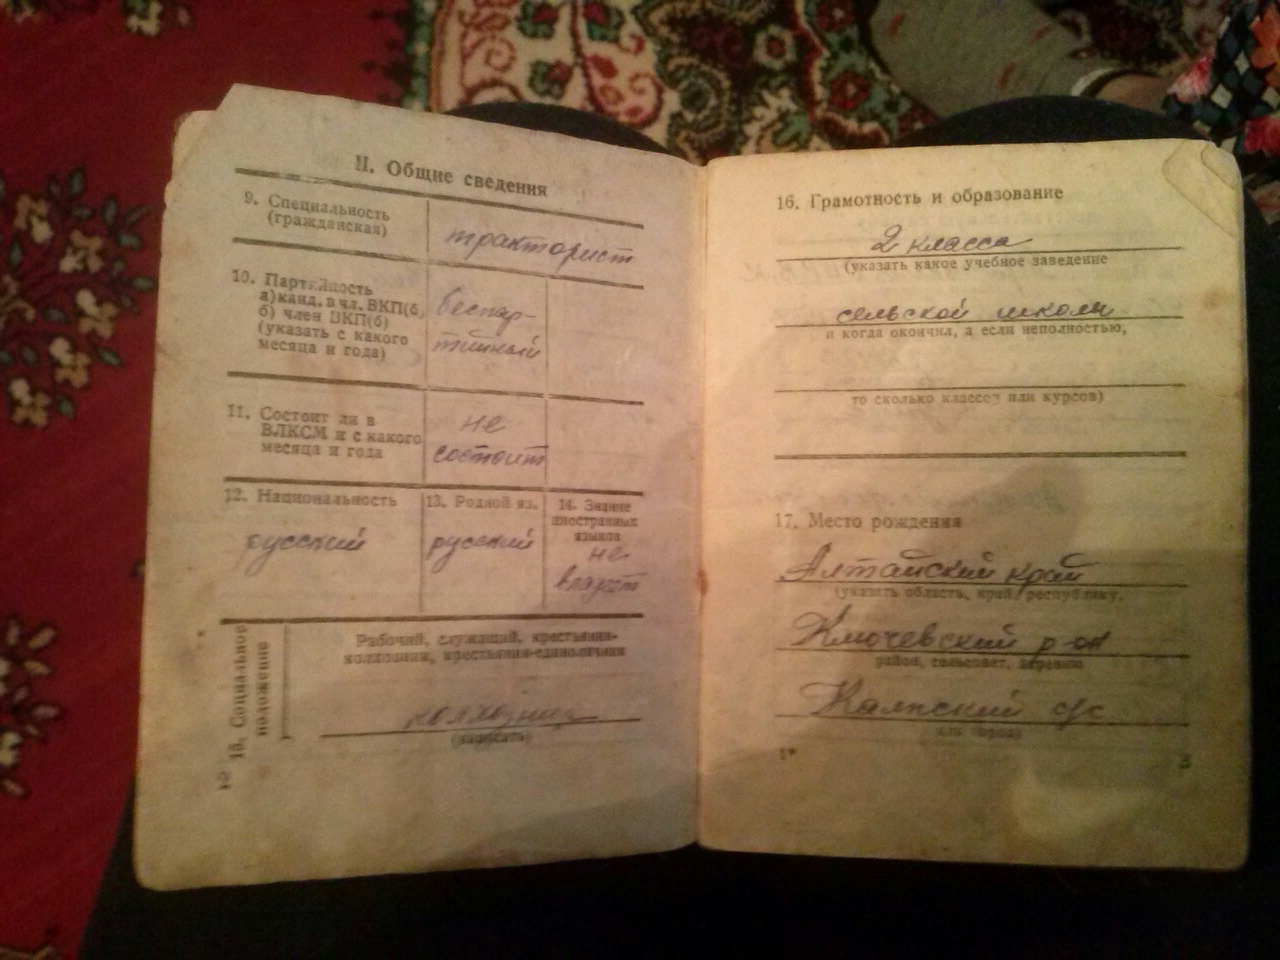 II. Общие сведения
9. Специальность
(гражданская)
тракторист
10. Партийность
а) канд. в чл. ВКП(б,
б) член ВКП(б)
(указать с какого
месяца и года)
беспар-
тийный
11. Состоит ли в
ВЛКСМ и с какого
месяца и года
не
состоит
12. Национальность
русский
13. Родной яз.
русский
14. Знание
иностранных
языков
не
владеет
15. Социальное
положение
Рабочий, служащий, крестьянин-
колхозник, крестьянин-единоличник
колхозник
(написать)
16. Грамотность и образование
2 класса
(указать какое учебное заведение
сельской школы
и когда окончил, а если неполностью,
то сколько классов или курсов)
17. Место рождения
Алтайский край
(указать область, край, республику,
Ключевский р-он
район, сельсовет, деревню
с/с
или город)
1*
3